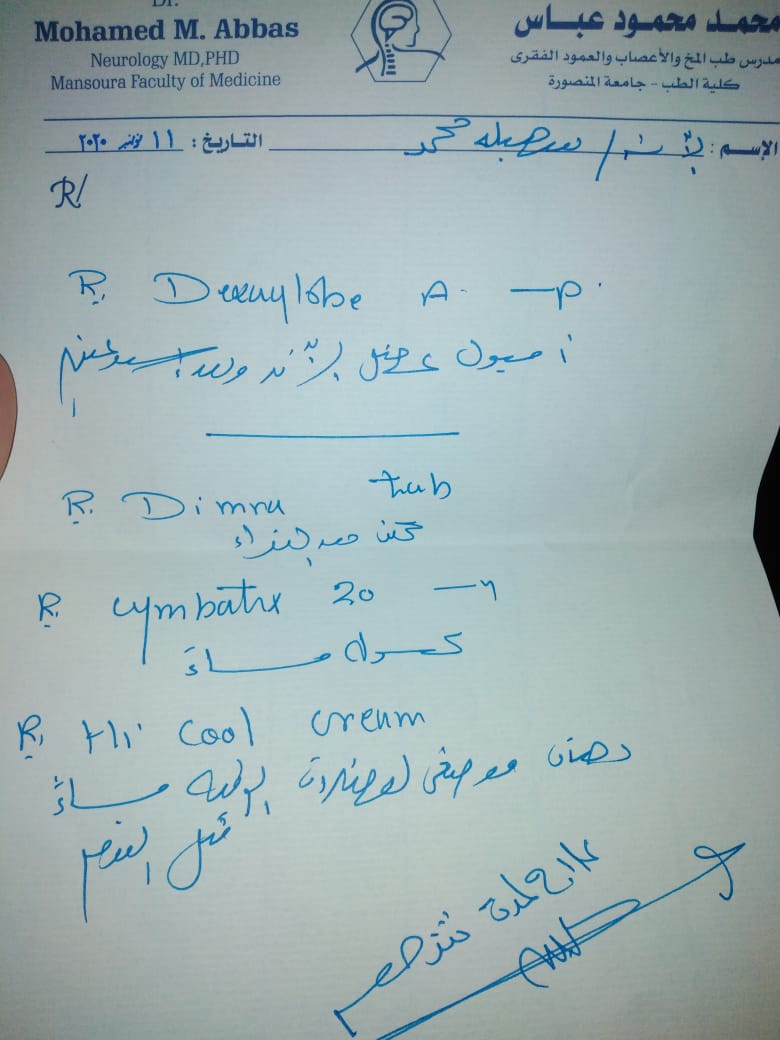 Dr.
Mohamed M. Abbas
Neurology MD,PHD
Mansoura Faculty of Medicine
محمد محمود عباس
مدرس طب المخ والأعصاب والعمود الفقرى
كلية الطب - جامعة المنصورة
الإسم: محمد
التاريخ: ١١ نوفمبر ٢٠٢٠
R/
R. A
أمبول عضل
R. Dimra tab
R. Cymbatex 20
كبسولة مساءً
R. Hi cool cream
دهان موضعى مساءً
قبل النوم
علاج لمدة شهر